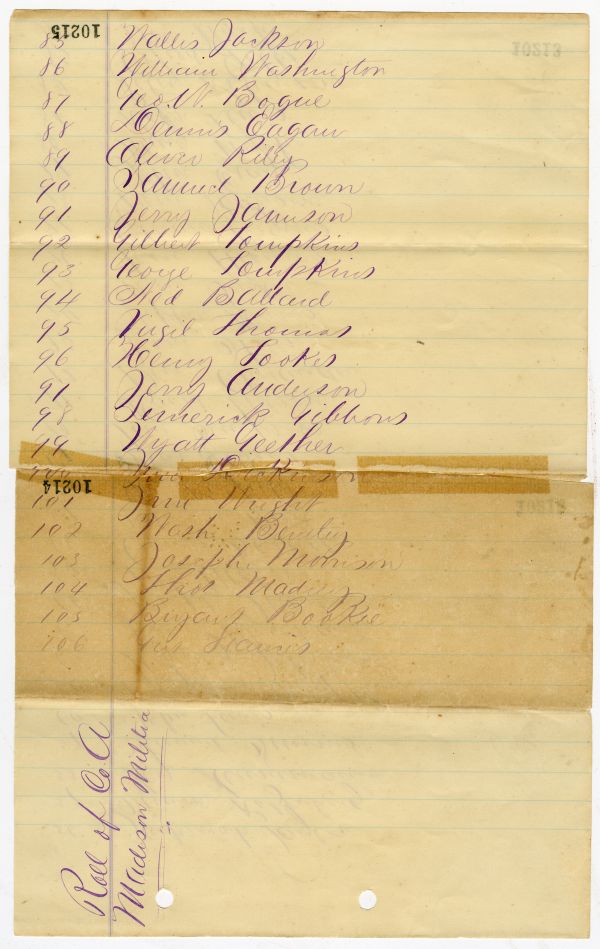 10215
85 Wallis Jackson
86 William Washington
87 Geo. W. Bogue
88 Dennis Eagan
89 Oliver Riley
90 Samuel Brown
91 Jerry Jamison
92 Gilbert Tompkins
93 George Tompkins
94 Ned Ballard
95 Virgil Thomas
96 Henry Tookes
91 Jerry Anderson
98 Limerick Gibbons
99 Wyatt Geether
100 Dickinson
10214
101 Wright
102 Wash. Bently
103 Joseph Morrison
104 Madry
105 Bryant Bookie
106
Roll of Co. A
Madison Militia